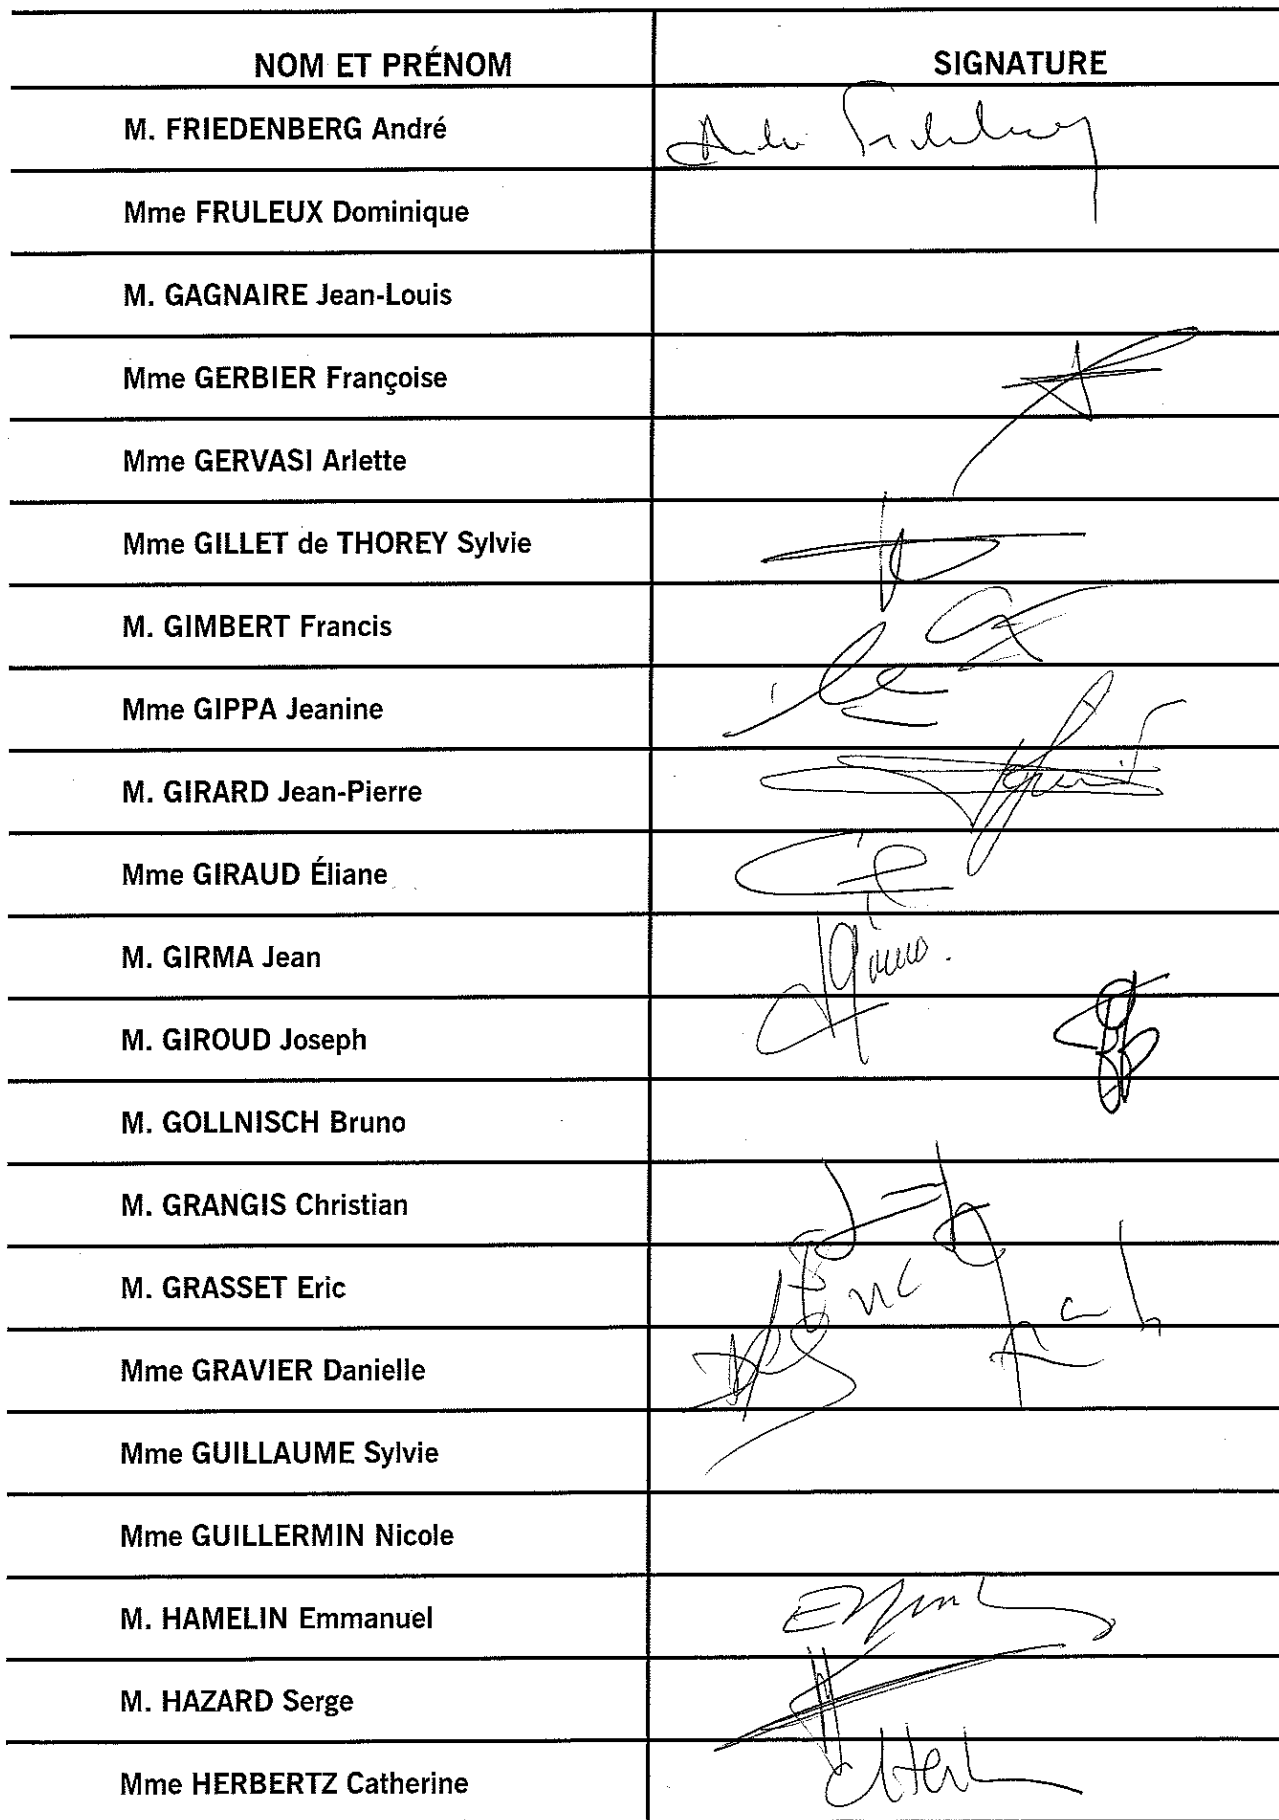 NOM ET PRÉNOM SIGNATURE
M. FRIEDENBERG André
Mme FRULEUX Dominique
M. GAGNAIRE Jean-Louis
Mme GERBIER Françoise
Mme GERVASI Arlette
Mme GILLET de THOREY Sylvie
M. GIMBERT Francis
Mme GIPPA Jeanine
M. GIRARD Jean-Pierre
Mme GIRAUD Éliane
M. GIRMA Jean
M. GIROUD Joseph
M. GOLLNISCH Bruno
M. GRANGIS Christian
M. GRASSET Eric
Mme GRAVIER Danielle
Mme GUILLAUME Sylvie
Mme GUILLERMIN Nicole
M. HAMELIN Emmanuel
M. HAZARD Serge
Mme HERBERTZ Catherine